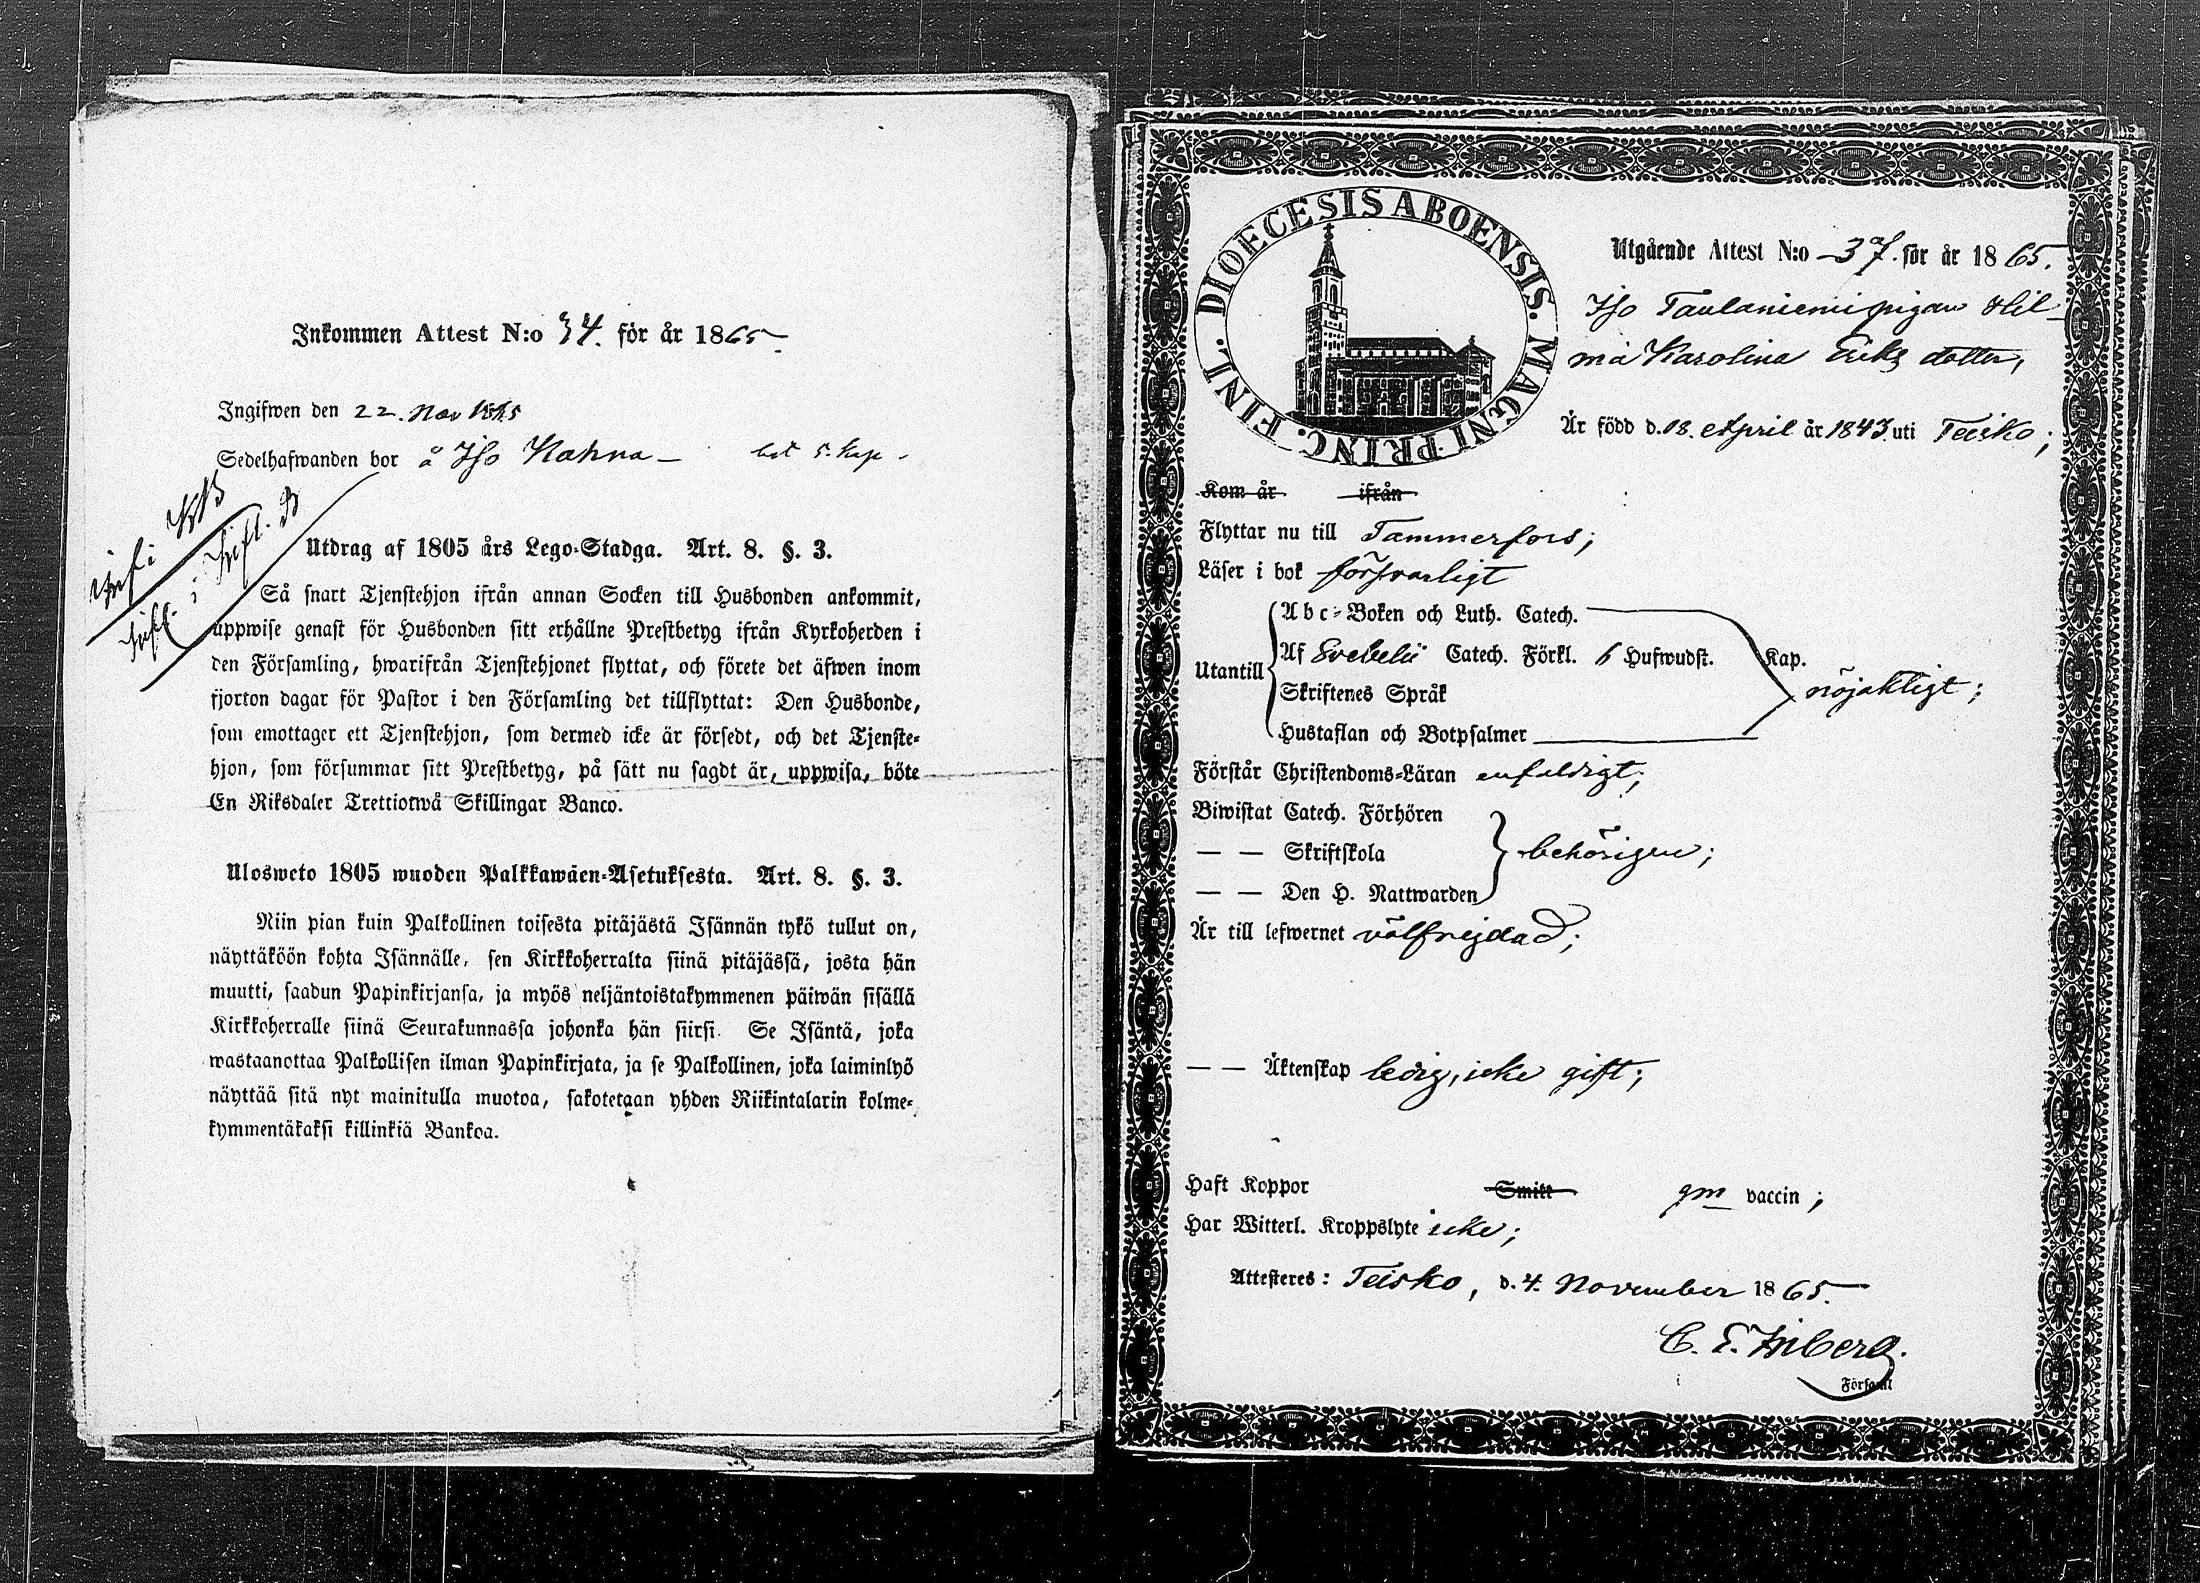 Inkommen Attest N:o 34. för år 1865
Ingifwen den 22. Nov 1865
Sedelhafwanden bor å Iso Kahna –
Utdrag af 1805 års Lego-Stadga. Art. 8. §. 3.
Så snart Tjenstehjon ifrån annan Socken till Husbonden ankommit,
uppwise genast för Husbonden sitt erhållne Prestbetyg ifrån Kyrkoherden i
den Församling, hwarifrån Tjenstehjonet flyttat, och förete det äfwen inom
fjorton dagar för Pastor i den Församling det tillflyttat: Den Husbonde,
som emottager ett Tjenstehjon, som dermed icke är försedt, och det Tjenste-
hjon, som försummar sitt Prestbetyg, på sätt nu sagdt är, uppwisa, böte
En Riksdaler Trettiotwå Skillingar Banco.
Ulosweto 1805 wuoden Palkkawäen-Asetuksesta. Art. 8. §. 3.
Niin pian kuin Palkollinen toisesta pitäjästä Isännän tykö tullut on,
näyttäköön kohta Isännälle, sen Kirkkoherralta siinä pitäjässä, josta hän
muutti, saadun Papinkirjansa, ja myös neljäntoistakymmenen päiwän sisällä
Kirkkoherralle siinä Seurakunnassa johonka hän siirsi. Se Isäntä, joka
wastaanottaa Palkollisen ilman Papinkirjata, ja se Palkollinen, joka laiminlyö
näyttää sitä nyt mainitulla muotoa, sakotetaan yhden Riikintalarin kolme-
kymmentäkaksi killinkiä Bankoa.
DIOECESIS ABOENSIS. MAGNI PRINC. FINL.
Utgående Attest N:o 37. för år 1865.
Iso Taulaniemi pigan Hil-
ma Karolina Eriks dotter,
Är född d. 18. April år 1843 uti Teisko;
Kom år ifrån
Flyttar nu till Tammerfors;
Läser i bok försvarligt
Utantill
Abc-Boken och Luth. Catech.
Af Svebelii Catech. Förkl. 6 Hufwudst. Kap.
Skriftenes Språk nöjaktigt;
Hustaflan och Botpsalmer
Förstår Christendoms-Läran enfaldigt;
Biwistat Catech. Förhören
— — Skriftskola behörigen;
— — Den H. Nattwarden
Är till lefwernet välfrejdad;
— — Äktenskap ledig, icke gift;
Haft Koppor Smitt gm vaccin;
Har Witterl. Kroppslyte icke;
Attesteres: Teisko, d. 4. November 1865.